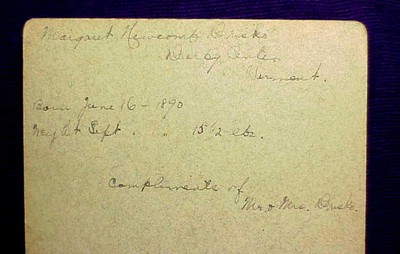 Margaret Newcomb Drisko
Derby Center
Vermont.
Born June 16 - 1890
Weight Sept. " " 15 1/2 lbs.
Compliments of
Mr & Mrs. Drisko.